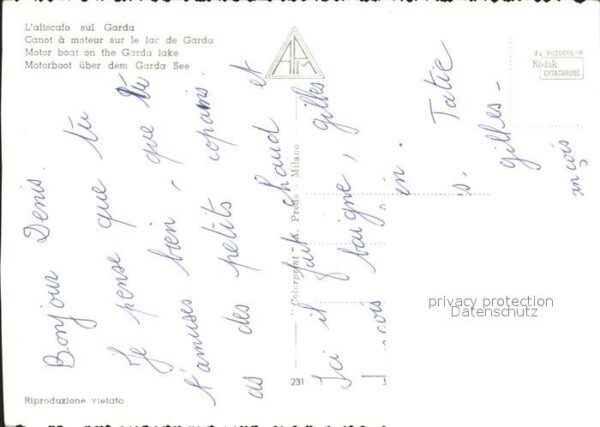 L'aliscafo sul Garda
Canot à moteur sur le lac de Garda
Motor boat on the Garda lake
Motorboot über dem Garda See
APM
IN FOTOCOLOR
Kodak
EKTACHROME
Bonjour Denis.
Je pense que tu
t'amuses bien, que tu
as des petits copains.
Ici il fait chaud et
baigne, gilles
çois in.
s. Tatie
gilles-
ançois
"Colorprint" A. Preda - Milano
231
privacy protection
Datenschutz
Riproduzione vietata